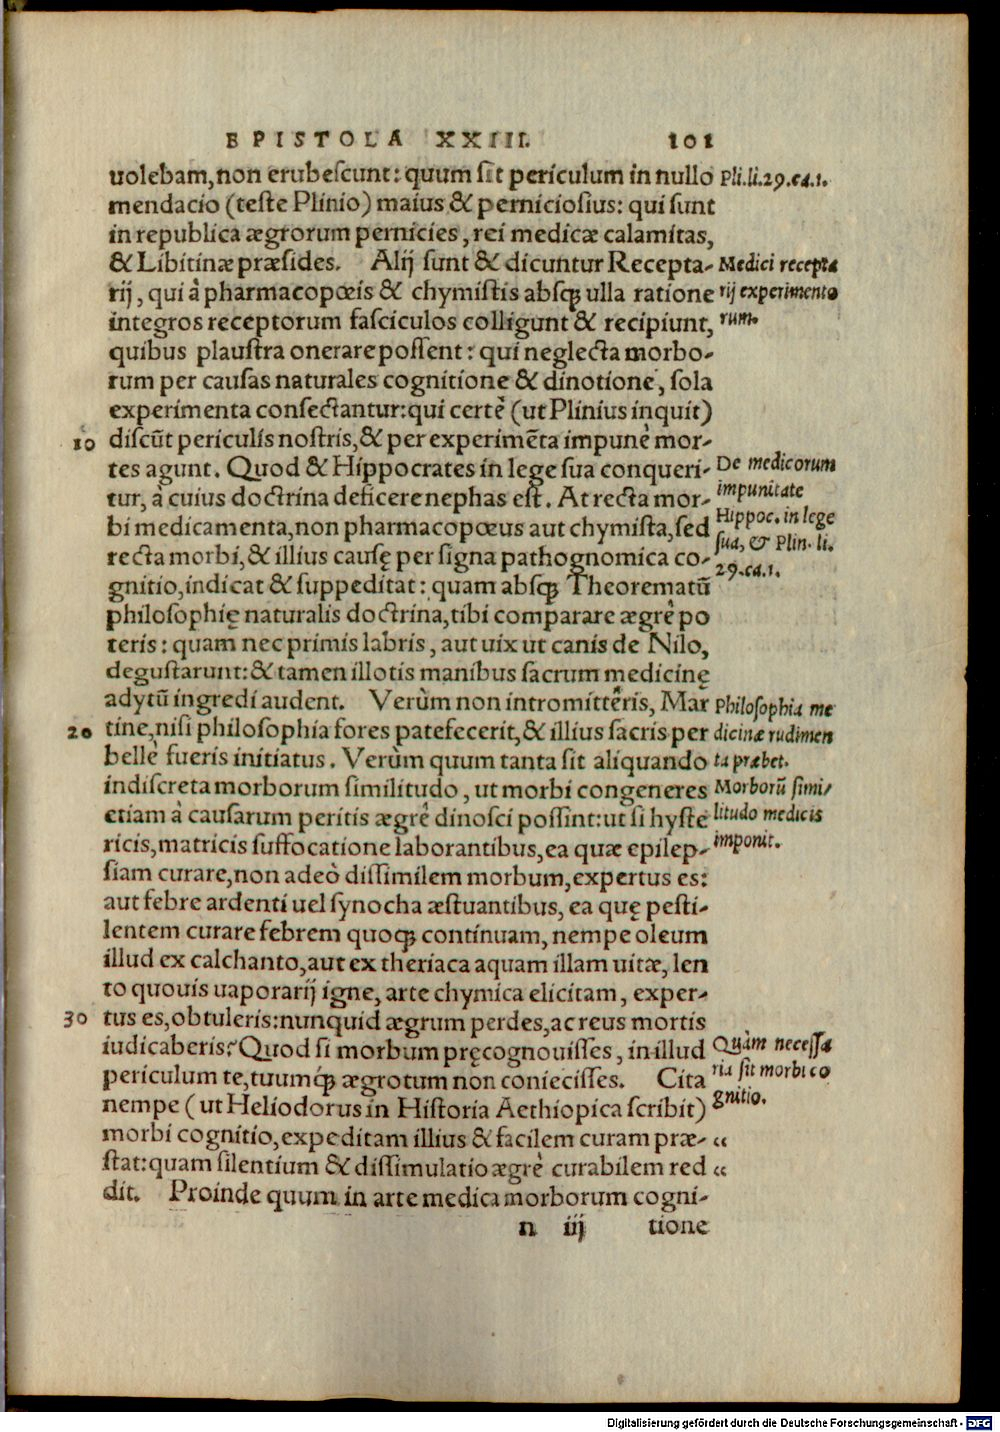 EPISTOLA XXIII. 101
uolebam, non erubescunt: quum sit periculum in nullo
mendacio (teste Plinio) maius & perniciosius: qui sunt
in republica ægrotorum pernicies, rei medicæ calamitas,
& Libitinæ præsides. Alij sunt & dicuntur Recepta-
rij, qui à pharmacopœis & chymistis absq; ulla ratione
integros receptorum fasciculos colligunt & recipiunt,
quibus plaustra onerare possent: qui neglecta morbo-
rum per causas naturales cognitione & dinotione, sola
experimenta consectantur: qui certè (ut Plinius inquit)
10 discūt periculis nostris, & per experimēta impunè mor-
tes agunt. Quod & Hippocrates in lege sua conqueri-
tur, à cuius doctrina deficere nephas est. At recta mor-
bi medicamenta, non pharmacopœus aut chymista, sed
recta morbi, & illius causę per signa pathognomica co-
gnitio, indicat & suppeditat: quam absq; Theorematū
philosophię naturalis doctrina, tibi comparare ægrè po
teris: quam nec primis labris, aut uix ut canis de Nilo,
degustarunt: & tamen illotis manibus sacrum medicinę
adytū ingredi audent. Verùm non intromittêris, Mar
20 tine, nisi philosophia fores patefecerit, & illius sacris per
bellè fueris initiatus. Verùm quum tanta sit aliquando
indiscreta morborum similitudo, ut morbi congeneres
etiam à causarum peritis ægrè dinosci possint: ut si hyste
ricis, matricis suffocatione laborantibus, ea quæ epilep-
siam curare, non adeò dissimilem morbum, expertus es:
aut febre ardenti uel synocha æstuantibus, ea quę pesti-
lentem curare febrem quoq; continuam, nempe oleum
illud ex calchanto, aut ex theriaca aquam illam uitæ, len
to quouis uaporarij igne, arte chymica elicitam, exper-
30 tus es, obtuleris: nunquid ægrum perdes, ac reus mortis
iudicaberis? Quod si morbum pręcognouisses, in illud
periculum te, tuumq́; ægrotum non coniecisses. Cita
nempe (ut Heliodorus in Historia Aethiopica scribit)
morbi cognitio, expeditam illius & facilem curam præ- “
stat: quam silentium & dissimulatio ægrè curabilem red “
dit. Proinde quum in arte medica morborum cogni-
n iij tione
Pli. li. 29. ca. 1.
Medici recepta
rij experimento
rum.
De medicorum
impunitate
Hippoc. in lege
sua, & Plin. li.
29. ca. 1.
Philosophia me
dicinæ rudimen
ta præbet.
Morborū simi-
litudo medicis
imponit.
Quàm necessa
ria sit morbi co
gnitio.
Digitalisierung gefördert durch die Deutsche Forschungsgemeinschaft - DFG